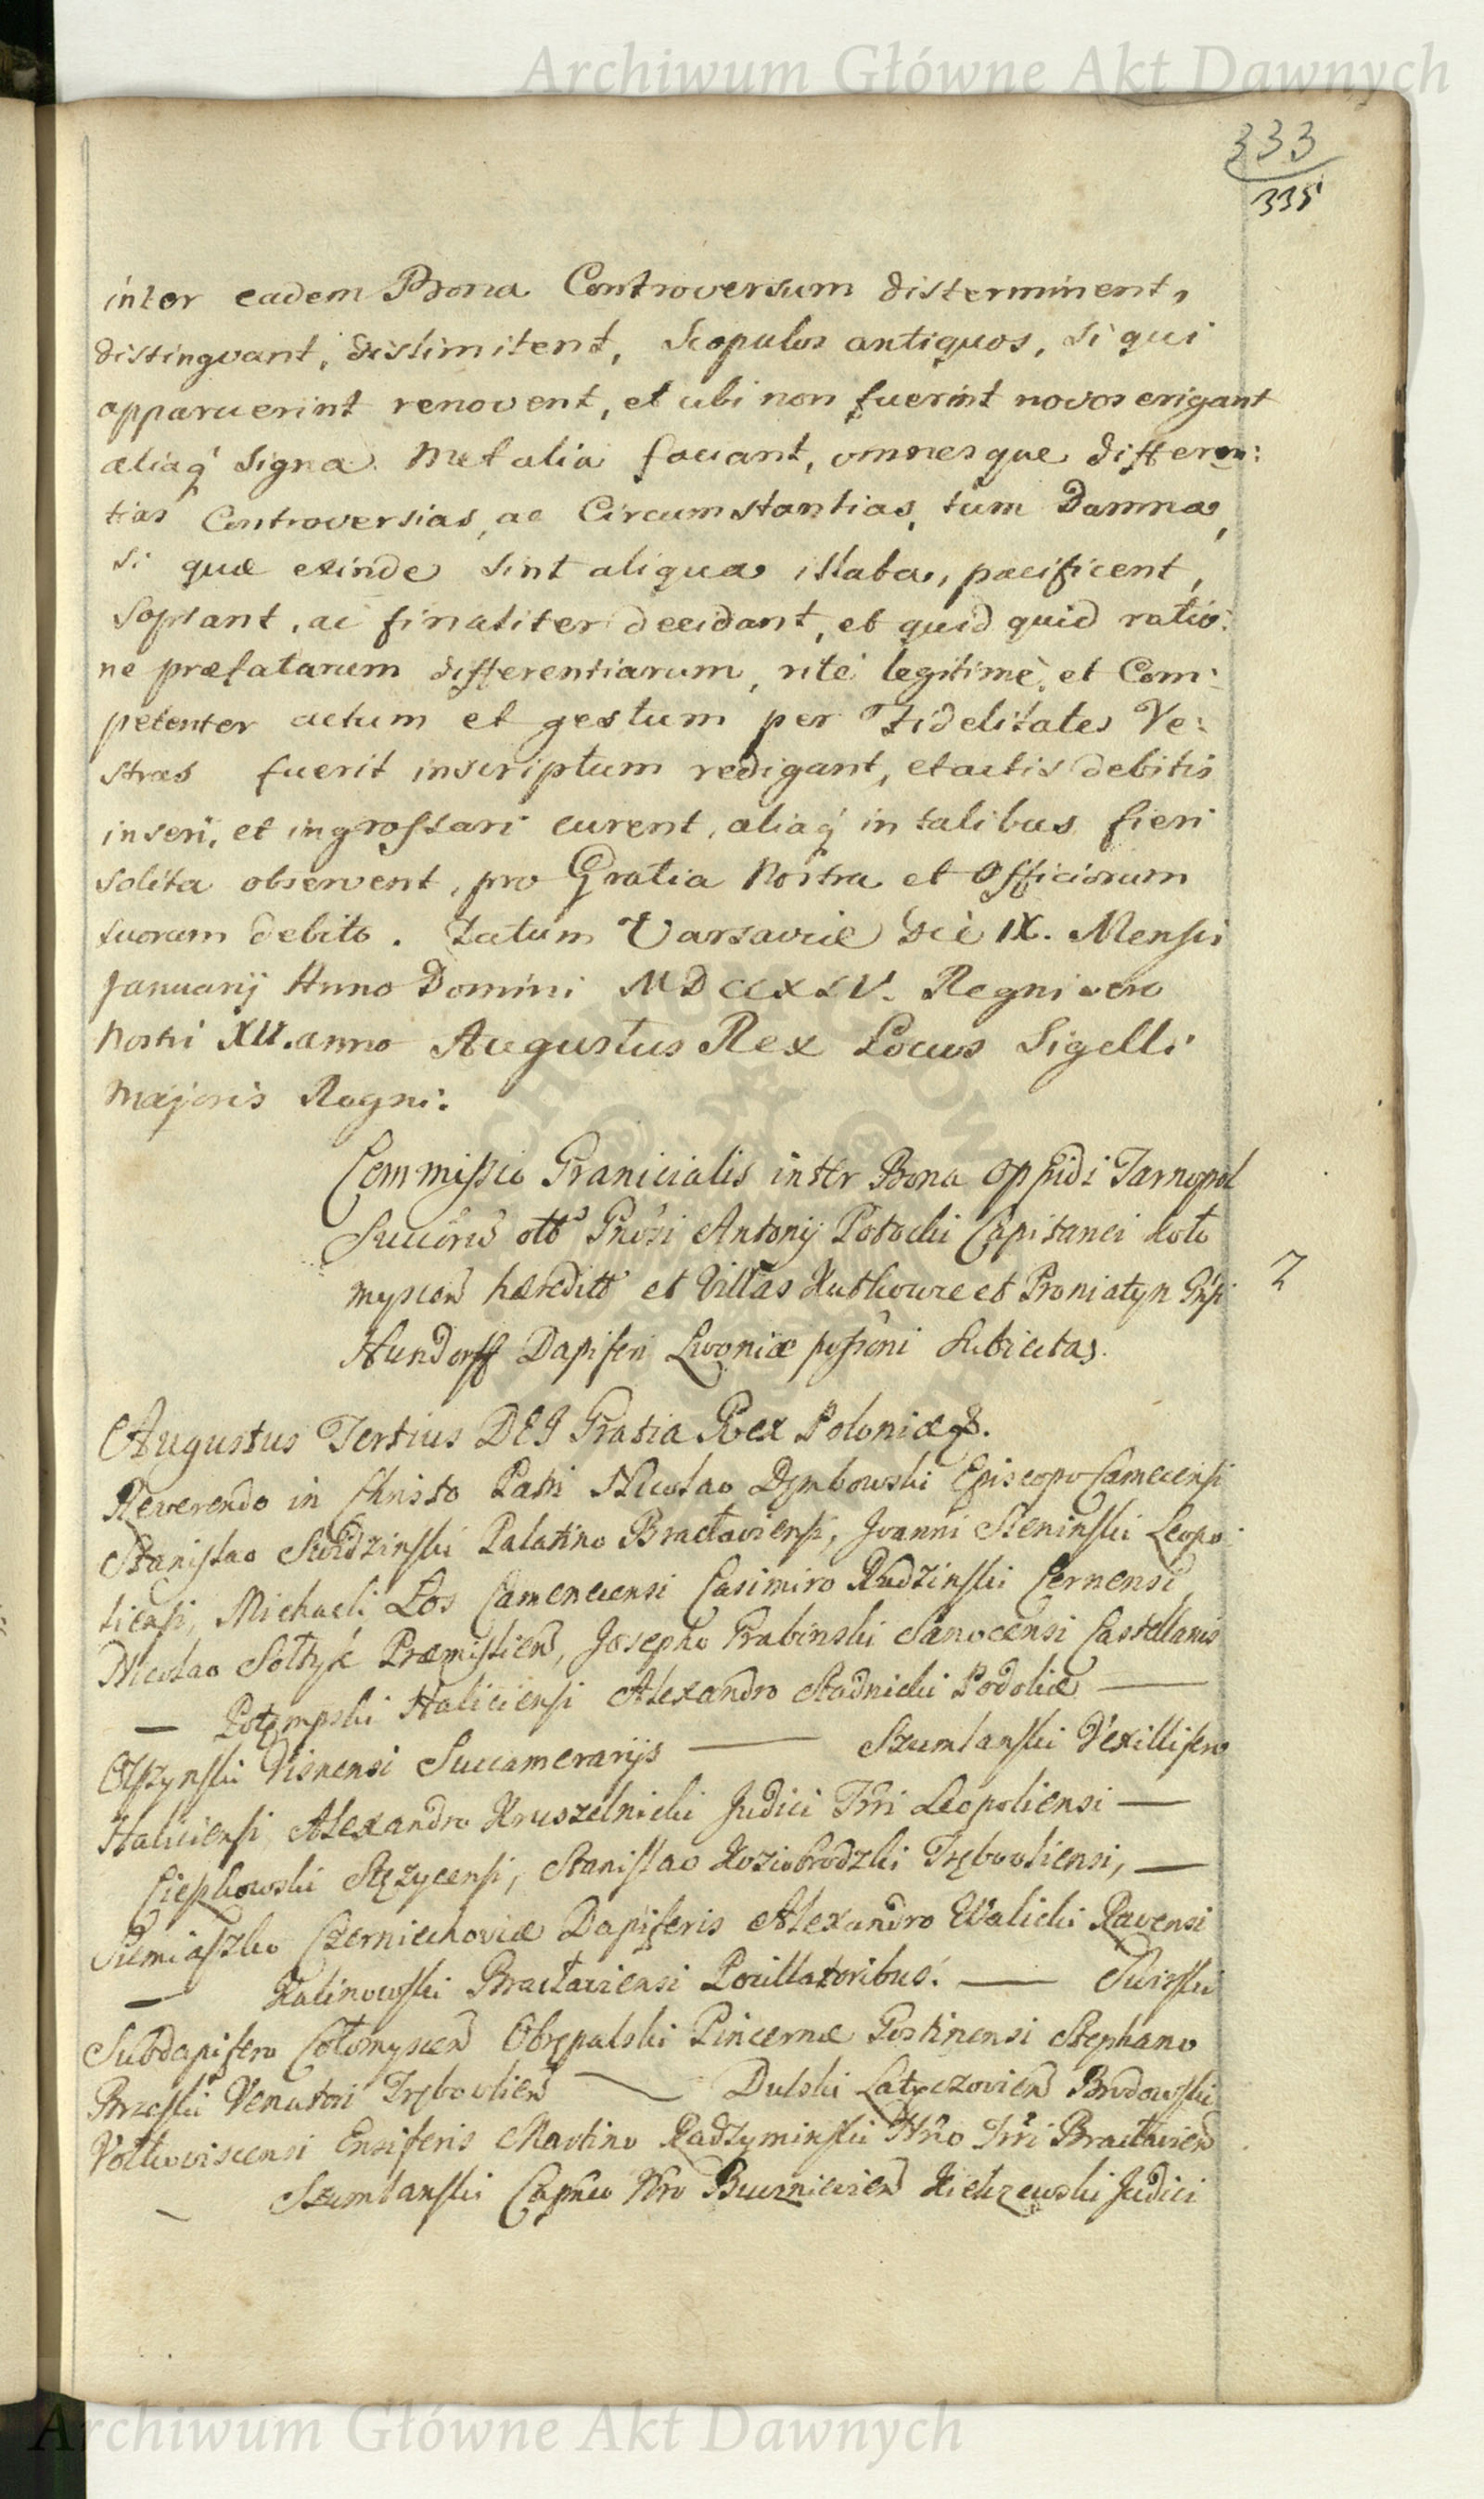 Archiwum Główne Akt Dawnych
333
335
inter eadem Bona Controversum disterminent,
distinguant, dislimitent, Scopulos antiquos, si qui
apparuerint renovent, et ubi non fuerint novos erigant
aliaq' Signa Metalia faciant, omnesque differen:
tias Controversias, ac Circumstantias, tum Damna,
si quæ exinde sint aliqua illata, pacificent,
sopiant, ac finaliter decidant, et quid quid ratio:
ne præfatarum differentiarum, rite legitimè, et Com:
petenter actum et gestum per Fidelitates Ve:
stras fuerit inscriptum redigant, et actis debitis
inseri, et ingrossari curent, aliaq' in talibus fieri
solita observent, pro Gratia Nostra et Officiorum
suorum debito. Datum Varsaviæ die IX. Mensis
Januarij Anno Domini MDCCXLV. Regni vero
Nostri XII. anno Augustus Rex Locus Sigelli
Majoris Regni:
Commissio Granicialis inter Bona Oppidi Tarnopol
Gnosi Antonij Potocki Capitanei Koło
myscen hæreditt et Villas Kutkowce et Proniatyn
Hundorff Dapiferi Livoniæ possioni Subiectas.
2
Augustus Tertius DEI Gratia Rex Poloniæ &.
Reverendo in Christo Patri Nicolao Dymbowski Episcopo Camecensi
Stanislao Swidzinski Palatino Bractaviensi, Joanni Sieninski Leopo:
liensi, Michaeli Łos Camenecensi Casimiro Rudzinski Cernensi,
Nicolao Sołtyk Præmislien, Josepho Grabinski Sanocensi Castellanis
— Potęmpski Haliciensi Alexandro Stadnicki Podoliæ —
Olszynski Visnensi Succamerarijs — Szumlanski Vexillifero
Haliciensi, Alexandro Kruszelnicki Judici Trri Leopoliensi —
Ciepkowski Stęzycensi, Stanislao Koziobrodzki Trębovliensi, —
Siemiaszko Czerniechoviæ Dapiferis Alexandro Walicki Ravensi
— Kalinowski Bractaviensi Pocillatoribus. — Swirski
Subdapifero Colomyscen Obrępalski Pincernæ Gostinensi Stephano
Brzeski Venatori Trębovlien — Dulski Latyczovien Brodowski
Volkoviscensi Ensiferis Martino Radzyminski Nrio Trri Bractavien
— Szumlanski Capneo Nro Kielczewski Judici
Archiwum Główne Akt Dawnych